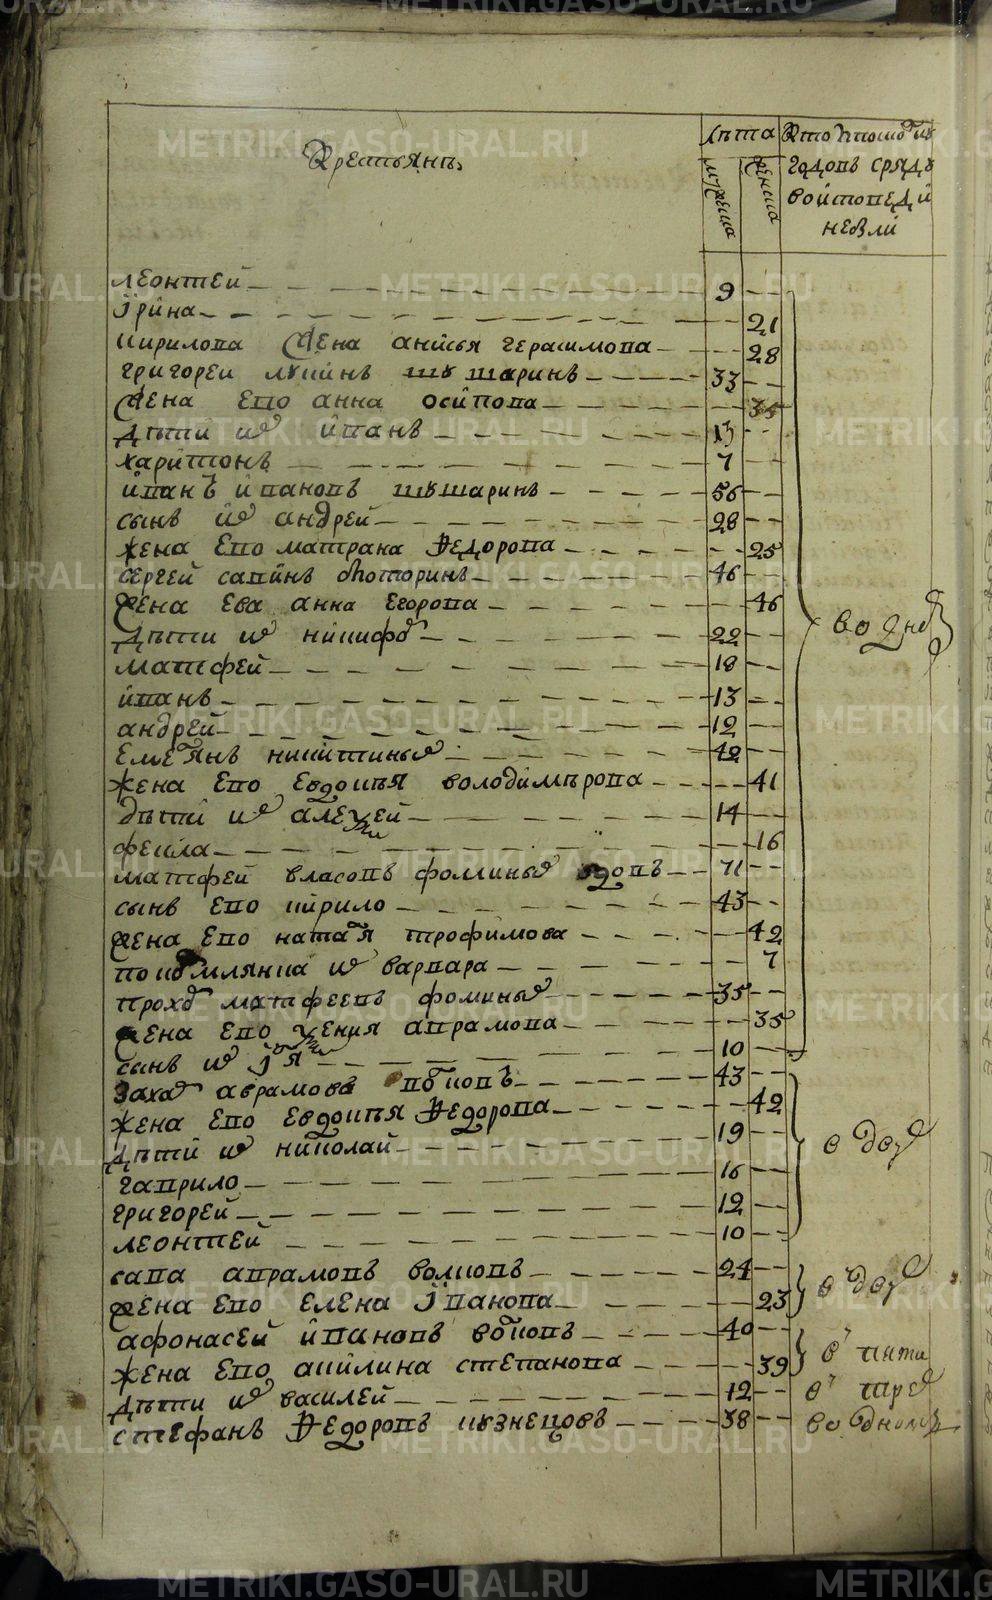 Крестьянъ
Лѣта
мужеска
женска
Кто
годовъ сряду
в исповеди
небли
леонтей 9
Iрина 21
кирилова жена анисья герасимова 28
григорей лукинъ шушаринъ 33
жена ево анна осипова 35
дѣти их иванъ 13
харитонъ 7
иванъ ивановъ шушаринъ 56
сынъ их андрей 28
жена ево матрана Федорова 25
сергей савинъ 46
жена ева анна егорова 46
дѣти их никифор 22
матфей 18
иванъ 13
андрей 12
емелянъ никитиных 42
жена ево евдокия володимѣрова 41
дѣти их алексей 14
фекла 16
матфей власовъ фоминых вдовъ 71
сынъ ево кирило 43
жена ево наталя трофимова 42
их варвара 7
прохор матфеевъ фоминых 35
жена ево ксения аврамова 35
сынъ их Iля 10
во одном
захар аврамовъ волковъ 43
жена ево евдокия Федорова 42
дѣти их николай 19
гаврило 16
григорей 12
леонтей 10
в двух
сава аврамовъ волковъ 24
жена ево елена Iванова 23
в двух
афонасей ивановъ волковъ 40
жена ево акилина степанова 39
в пяти
дѣти их василей 12 в трех
стефанъ Федоровъ кузнецовъ 38 во одном
METRIKI.GASO-URAL.RU